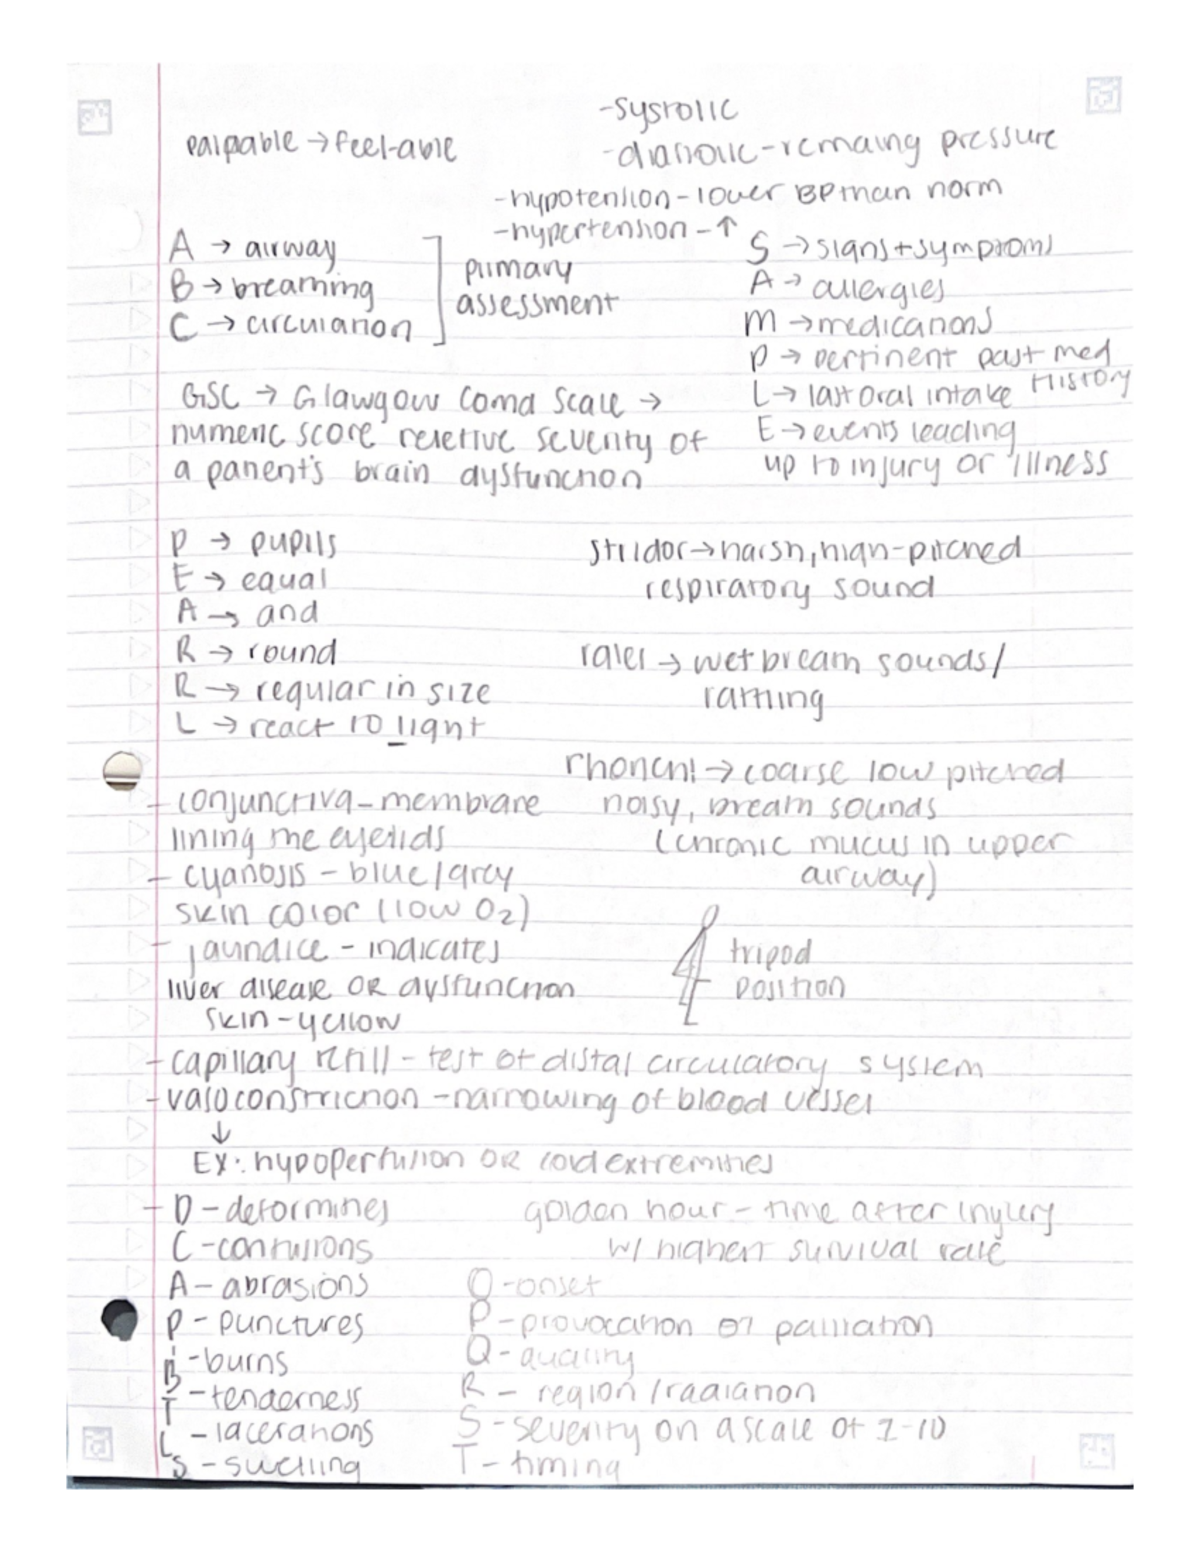 -systolic
palpable → feel-able
-diastolic-remaing pressure
-hypotension-lower BP than norm
-hypertension-↑
A → airway
B → breathing
C → circulation
primary
assessment
S → signs+symptoms
A → allergies
M → medications
P → pertinent past med
History
L → last oral intake
E → events leading
up to injury or illness
GSC → Glawgow coma scale →
numeric score reletive severity of
a patient's brain dysfunction
P → pupils
E → equal
A → and
R → round
R → regular in size
L → react to light
stridor → harsh, high-pitched
respiratory sound
rales → wet breath sounds/
rattling
rhonchi → coarse low pitched
noisy, breath sounds
(chronic mucus in upper
airway)
- conjunctiva-membrane
lining the eyelids
- cyanosis - blue/grey
skin color (low O2)
- jaundice - indicates
liver disease OR dysfunction
skin-yellow
tripod
position
- capillary refill - test of distal circulatory system
- vasoconstriction -narrowing of blood vessel
↓
Ex: hypoperfusion OR cold extremities
- D - deformines
C - contusions
A - abrasions
P - punctures
B - burns
T - tenderness
L - lacerations
S - swelling
golden hour - time after injury
w/ highest survival rate
O -onset
P -provocation or palliation
Q - quality
R - region/radiation
S - severity on a scale of 1-10
T - timing